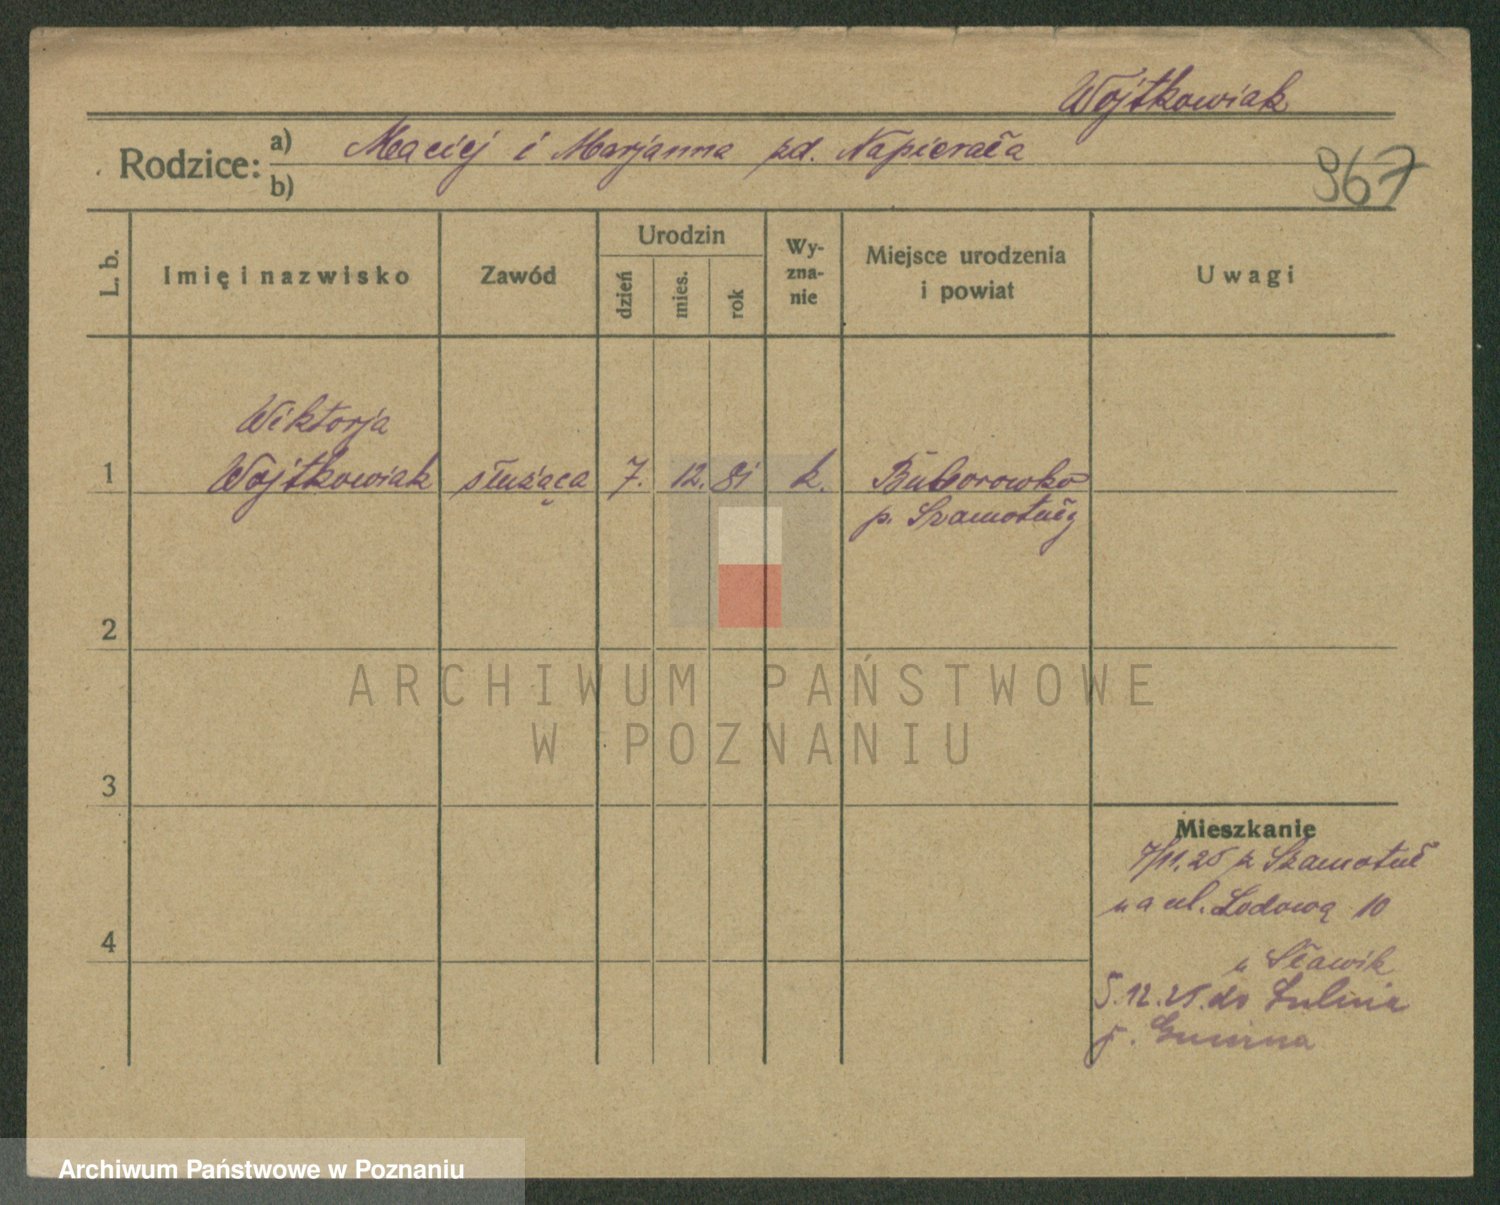 Wojtkowiak
Rodzice: a) Maciej i Marjanna zd. Napierała
b)
967
L. b. Imię i nazwisko Zawód Urodzin dzień mies. rok Wy-zna-nie Miejsce urodzenia i powiat Uwagi
Wiktorja
1 Wojtkowiak służąca 7. 12. 81 k. Buborowko
p. Szamotuły
2
3
4
Mieszkanie
7/11. 25 z Szamotuł
na ul. Lodową 10
u Sławik
5. 12. 25. do Lulina
ARCHIWUM PAŃSTWOWE
W POZNANIU
Archiwum Państwowe w Poznaniu